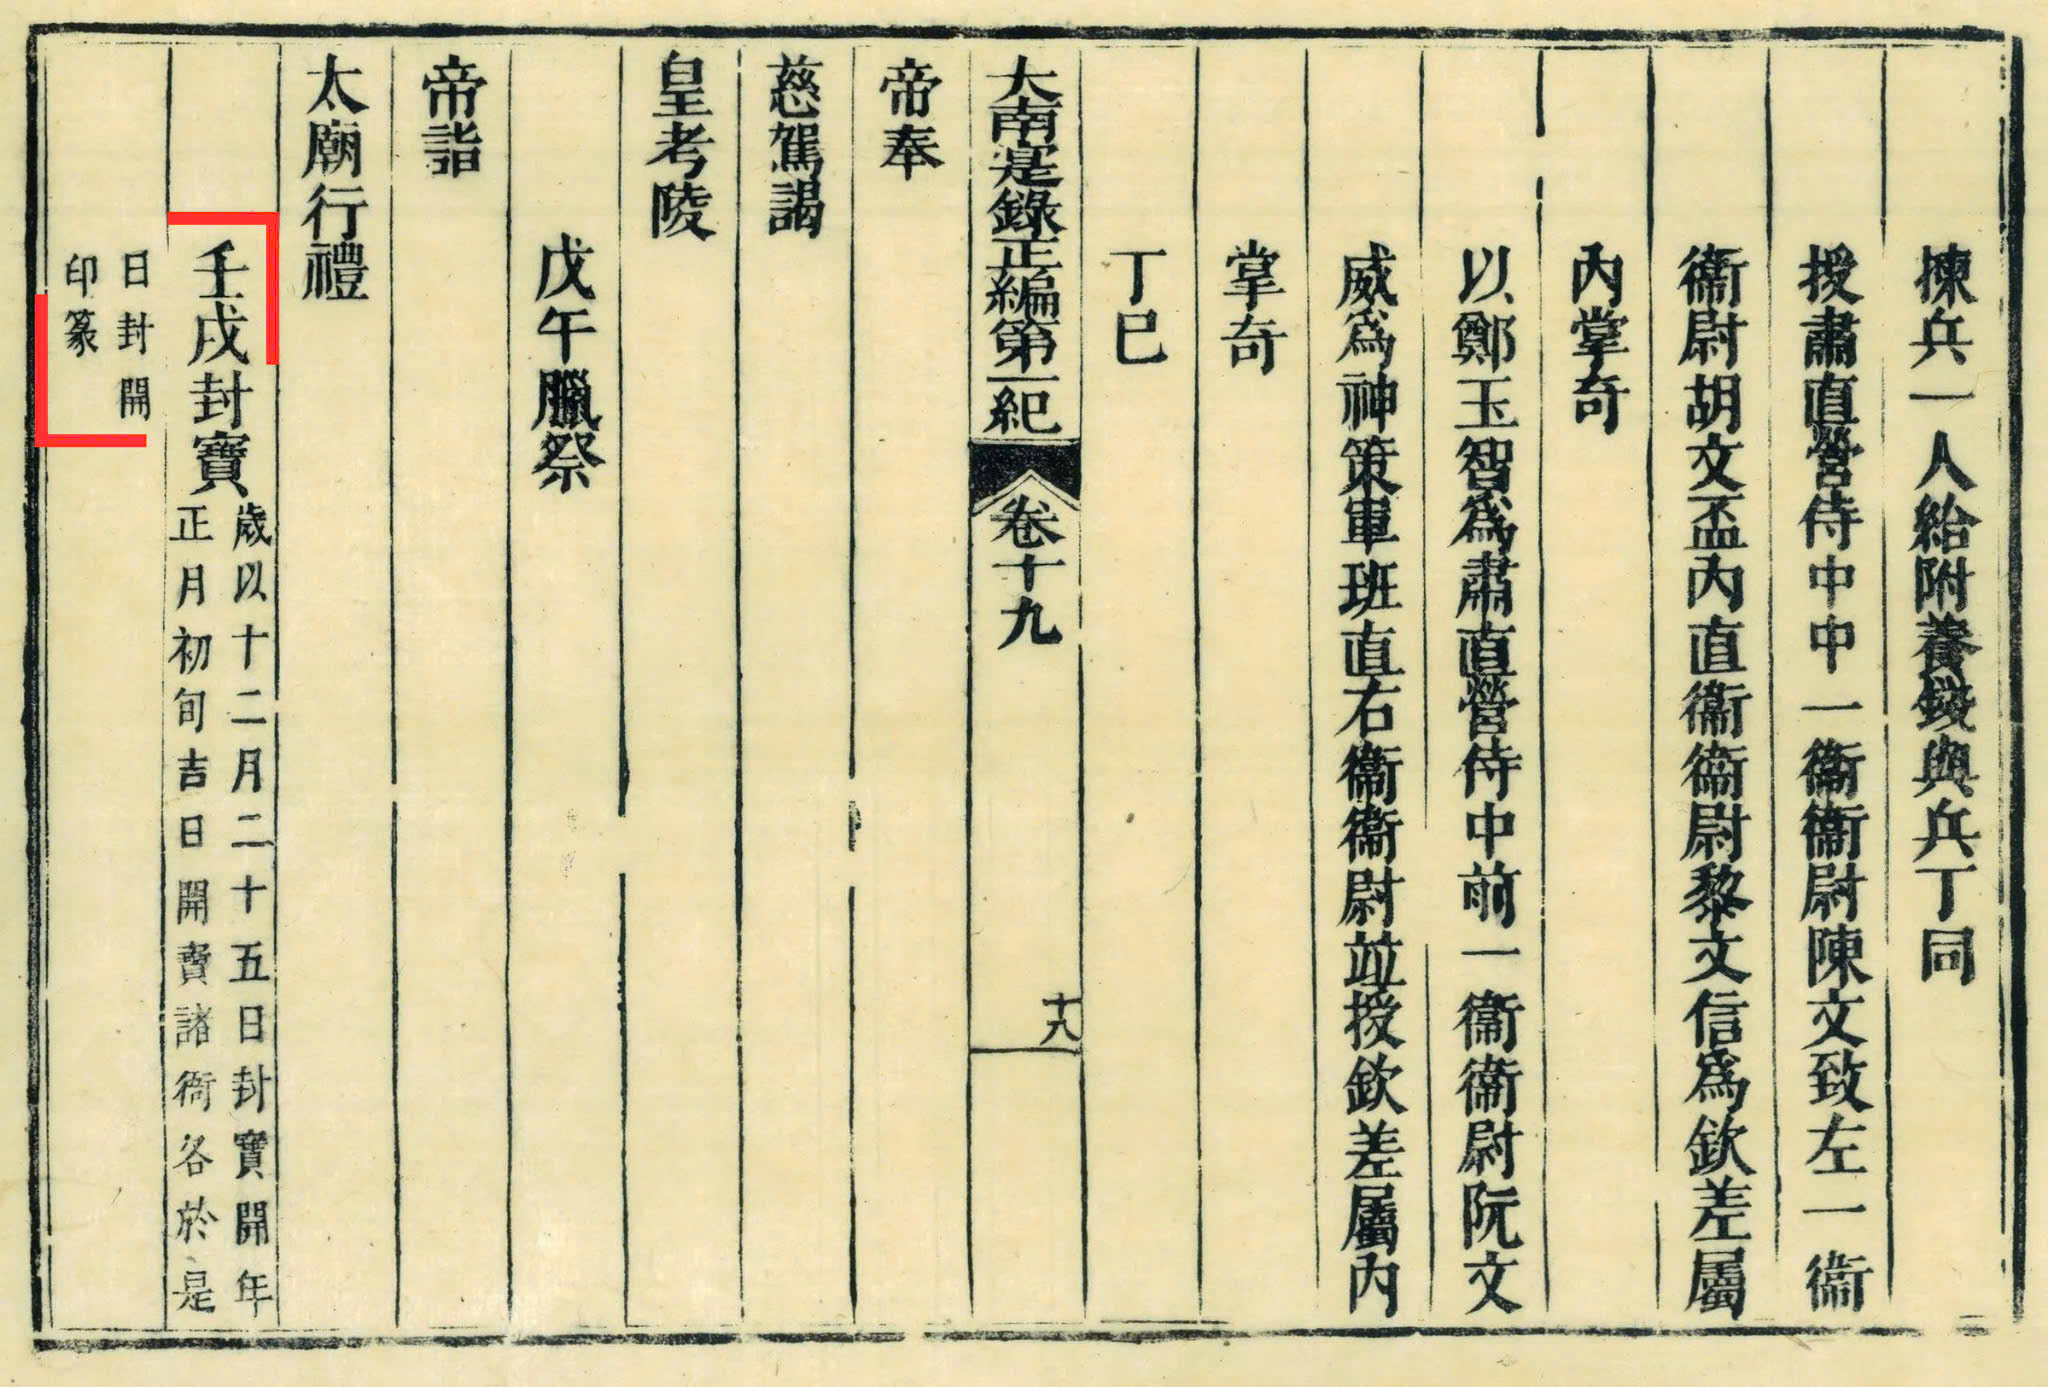 揀兵一人給附養錢與兵丁同
授肅直營侍中中一衞衞尉陳文致左一衞
衞尉胡文盃內直衞衞尉黎文信爲欽差屬
內掌奇
以鄭玉智爲肅直營侍中前一衞衞尉阮文
威爲神策軍班直右衞衞尉竝授欽差屬內
掌奇
丁巳
大南寔錄正編第一紀 卷十九 十八
帝奉
慈駕謁
皇考陵
戊午臘祭
帝詣
太廟行禮
壬戌封寶
歲以十二月二十五日封寶開年
正月初旬吉日開寶諸衙各於是
日封開
印篆